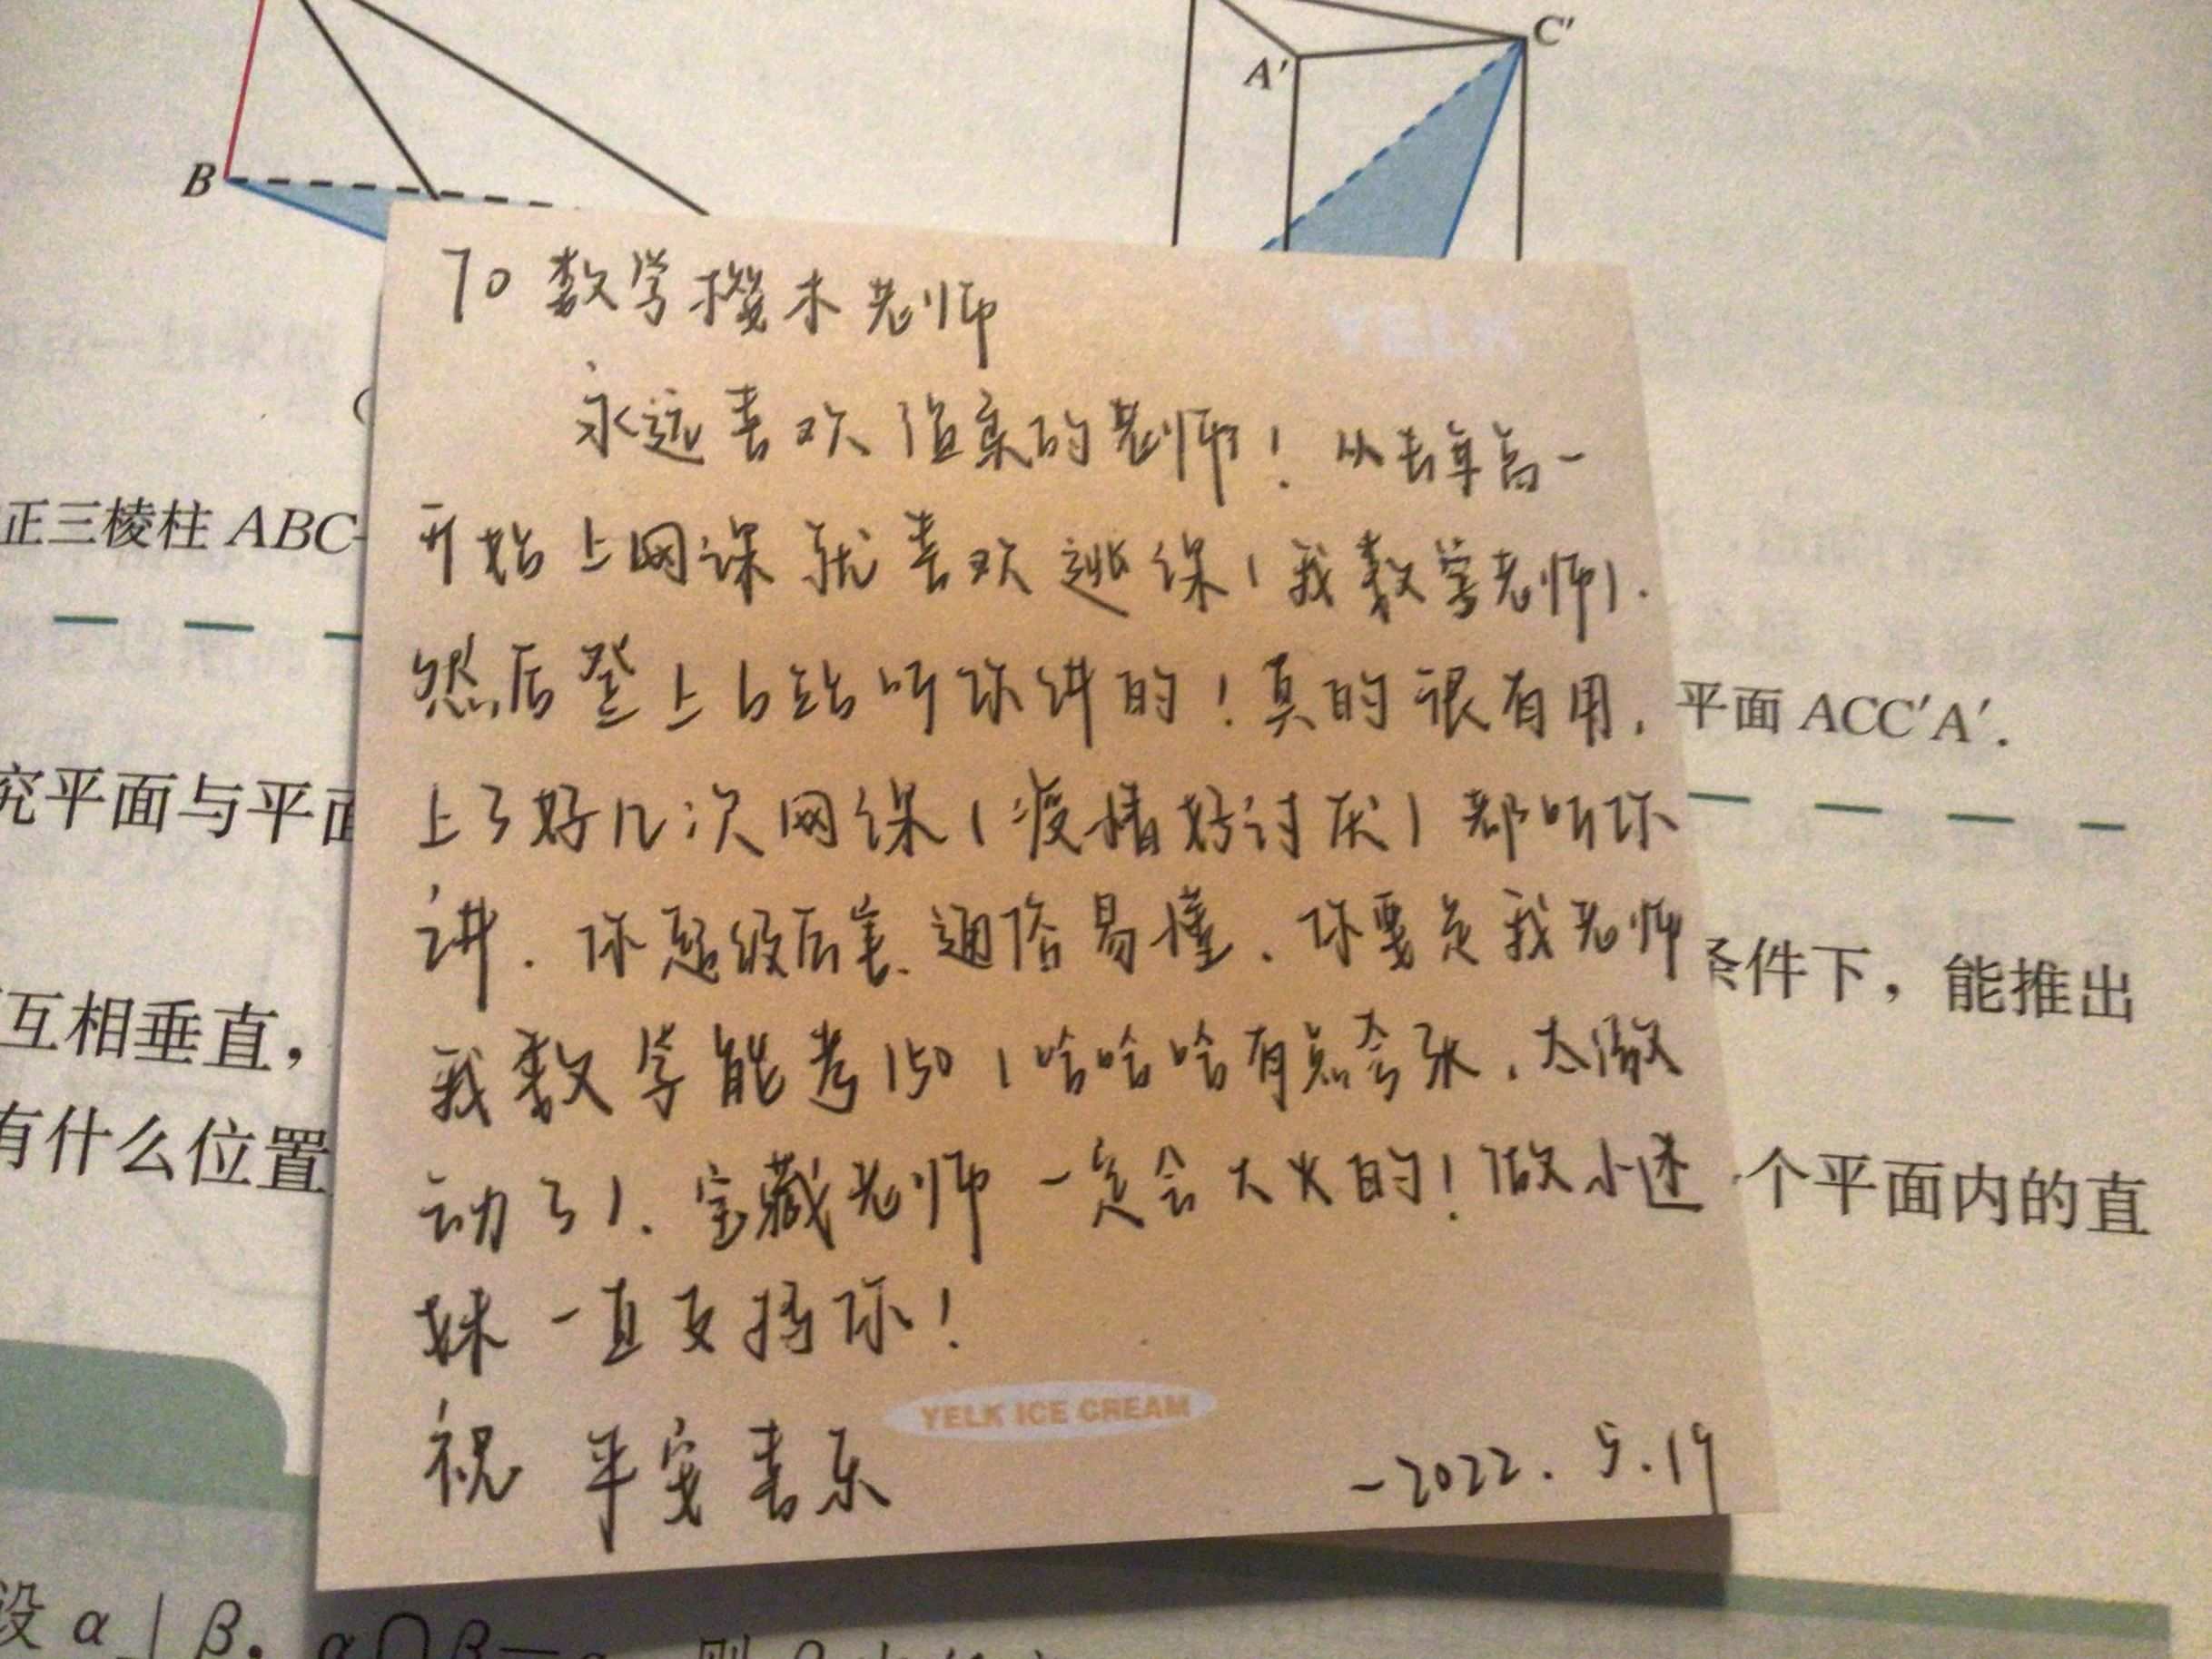 B
A'
C'
TO 数学櫻木老师
YELK
永远喜欢值桑的老师！从去年高一
开始上网课就喜欢逃课(我数学老师).
正三棱柱 ABC-
然后登上b站听你讲的！真的很有用.
平面 ACC′A′.
上了好几次网课(疫情好讨厌)都听你
究平面与平面
讲.你超级厉害.通俗易懂.你要是我老师
条件下，能推出
互相垂直，
我数学能考150(哈哈哈有点夸张.太激
有什么位置
动了).宝藏老师一定会大火的！做小迷
个平面内的直
妹一直支持你！
YELK ICE CREAM
祝 平安喜乐
-2022.5.19
设 α⊥β，α∩β=a